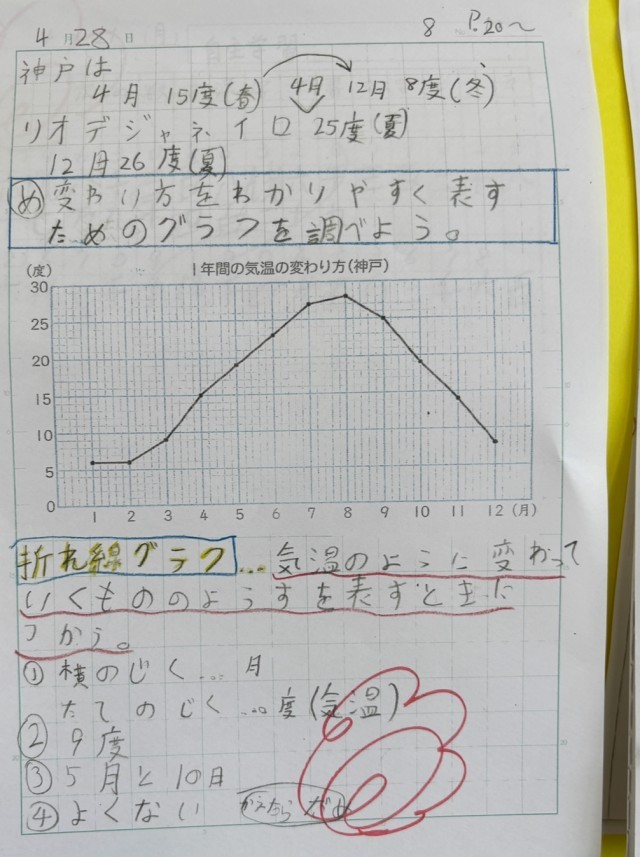 4月28日 8 P.20～
神戸は
4月 15度(春) 4月 12月 8度(冬)
リオデジャネイロ 25度(夏)
12月26度(夏)
め 変わり方をわかりやすく表す
ためのグラフを調べよう。
(度) 1年間の気温の変わり方(神戸)
30
25
20
15
10
5
0
1 2 3 4 5 6 7 8 9 10 11 12(月)
折れ線グラフ…気温のように変わって
いくもののようすを表すときに
つかう。
①横のじく…月
たてのじく…度(気温)
②9度
③5月と10日
④よくない かえたらだめ